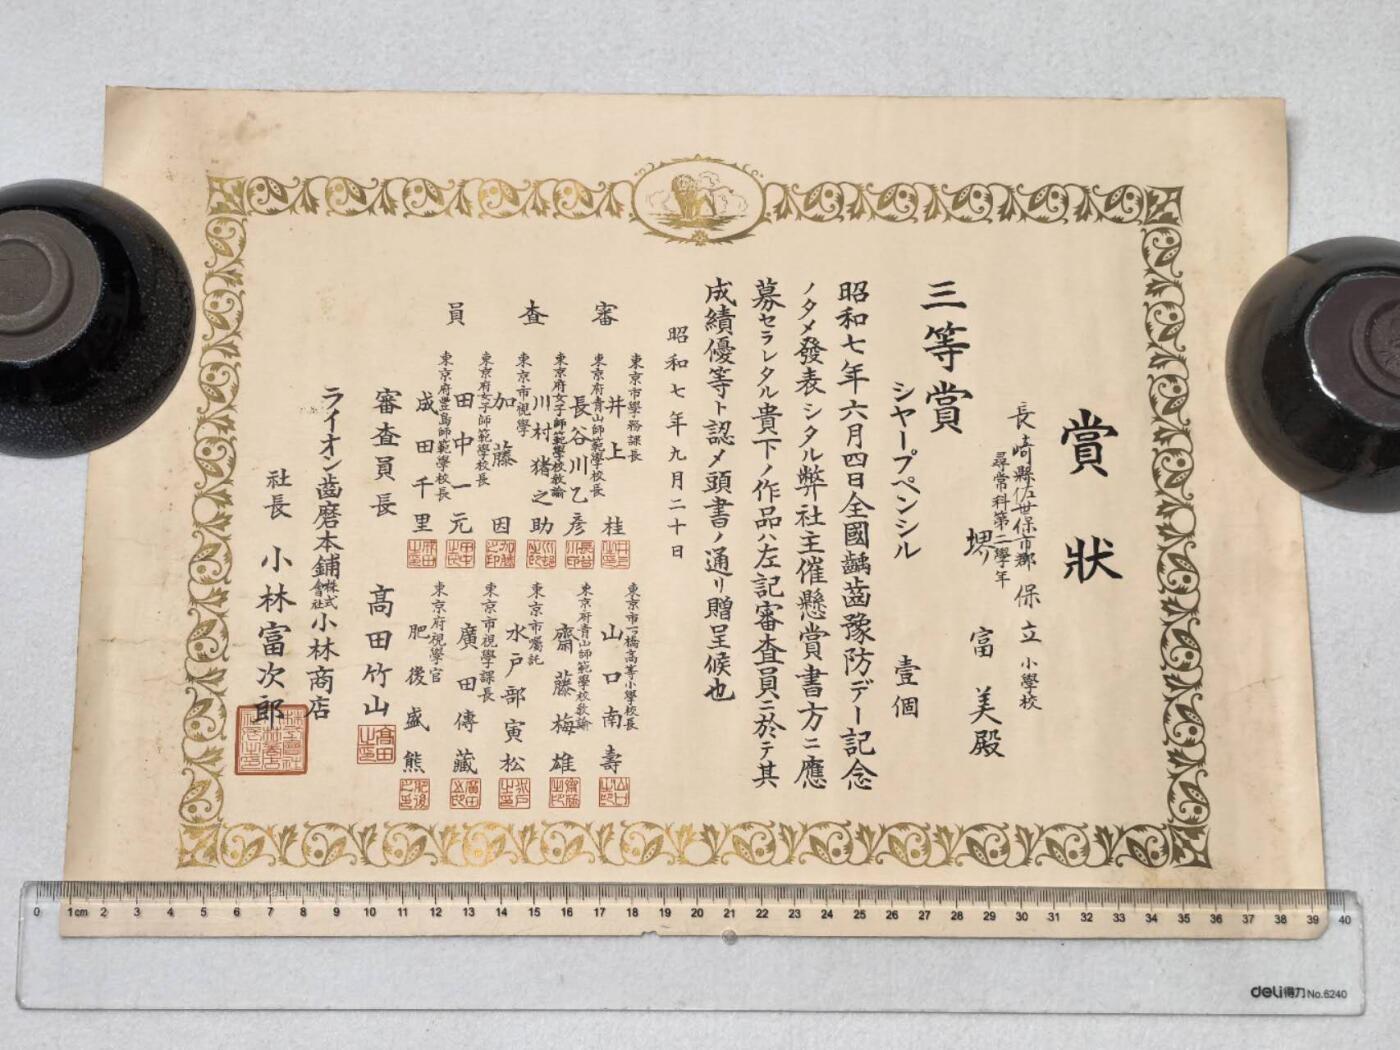 賞狀
長崎縣佐世保市鄕 保立 小學校
尋常科第二學年
堺 富美殿
三等賞
シヤープペンシル 壹個
昭和七年六月四日全國齲齒豫防デー記念
ノタメ發表シタル弊社主催懸賞書方ニ應
募セラレタル貴下ノ作品ハ左記審査員ニ於テ其
成績優等ト認メ頭書ノ通リ贈呈候也
昭和七年九月二十日
審査員
東京市學務課長
井上 桂
東京府靑山師範學校長
長谷川乙彥
東京府女子師範學校敎諭
川村猪之助
東京市視學
加藤 因
東京府女子師範學校長
田中一元
東京府豐島師範學校長
成田千里
東京市一橋高等小學校長
山口南壽
東京府靑山師範學校敎諭
齋藤梅雄
東京市囑託
水戶部寅松
東京市視學課長
廣田傳藏
東京府視學官
肥後盛熊
審査員長 高田竹山
ライオン齒磨本鋪 株式會社 小林商店
社長 小林富次郎
0 1cm 2 3 4 5 6 7 8 9 10 11 12 13 14 15 16 17 18 19 20 21 22 23 24 25 26 27 28 29 30 31 32 33 34 35 36 37 38 39 40
deli得力 No.6240